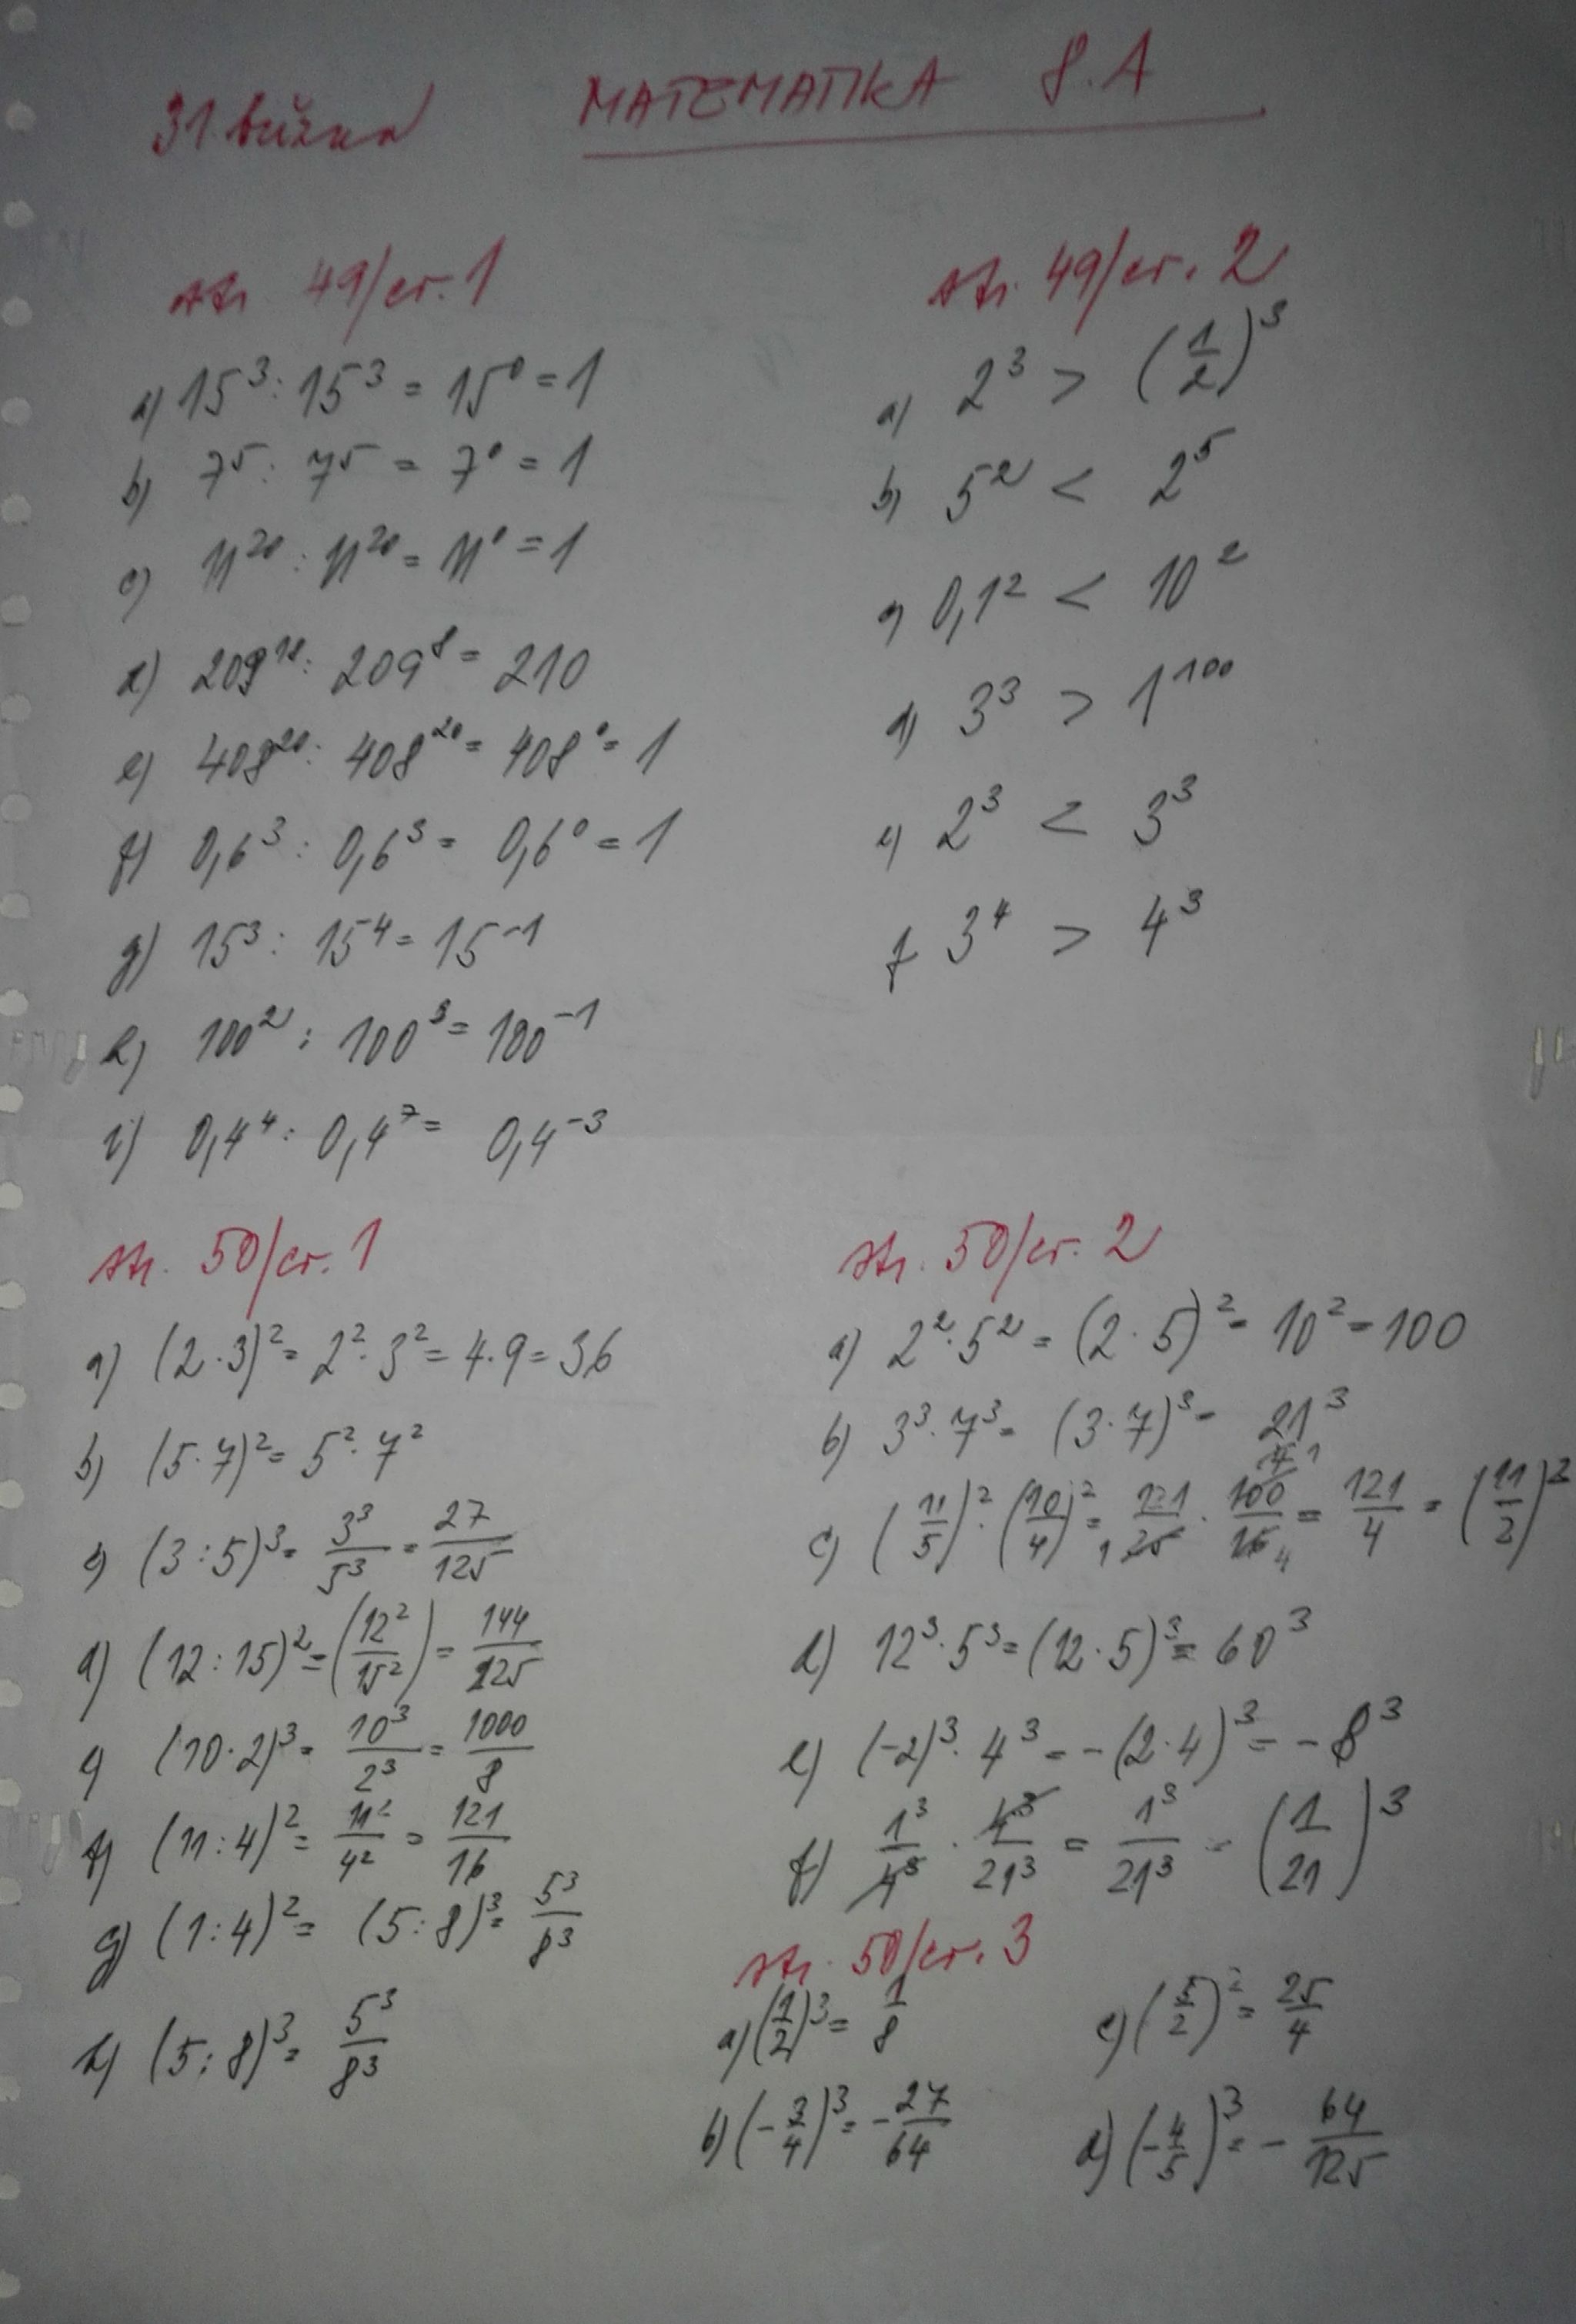 31. března MATEMATIKA 8.A
str. 49/cv. 1
a) 15³ : 15³ = 15⁰ = 1
b) 7⁵ : 7⁵ = 7⁰ = 1
c) 11²⁰ : 11²⁰ = 11⁰ = 1
d) 209¹⁸ : 209⁸ = 210
e) 408²⁰ : 408²⁰ = 408⁰ = 1
f) 0,6³ : 0,6³ = 0,6⁰ = 1
g) 15³ : 15⁴ = 15⁻¹
h) 100² : 100³ = 100⁻¹
i) 0,4⁴ : 0,4⁷ = 0,4⁻³
str. 49/cv. 2
a) 2³ > (1/2)³
b) 5² < 2⁵
c) 0,1² < 10²
d) 3³ > 1¹⁰⁰
e) 2³ < 3³
f 3⁴ > 4³
str. 50/cv. 1
a) (2·3)² = 2²·3² = 4·9 = 36
b) (5·7)² = 5²·7²
c) (3:5)³ = 3³/5³ = 27/125
d) (12:15)² = (12²/15²) = 144/225
e) (10·2)³ = 10³/2³ = 1000/8
f) (11:4)² = 11²/4² = 121/16
g) (1:4)² = (5:8)³ = 5³/8³
h) (5:8)³ = 5³/8³
str. 50/cv. 2
a) 2²·5² = (2·5)² = 10² = 100
b) 3³·7³ = (3·7)³ = 21³
c) (11/5)²·(10/4)² = 121/25 · 100/16 = 121/4 = (11/2)²
d) 12³·5³ = (12·5)³ = 60³
e) (-2)³·4³ = -(2·4)³ = -8³
f) 1³/4³ · 4³/21³ = 1³/21³ = (1/21)³
str. 50/cv. 3
a) (1/2)³ = 1/8
b) (-3/4)³ = -27/64
c) (5/2)² = 25/4
d) (-4/5)³ = -64/125